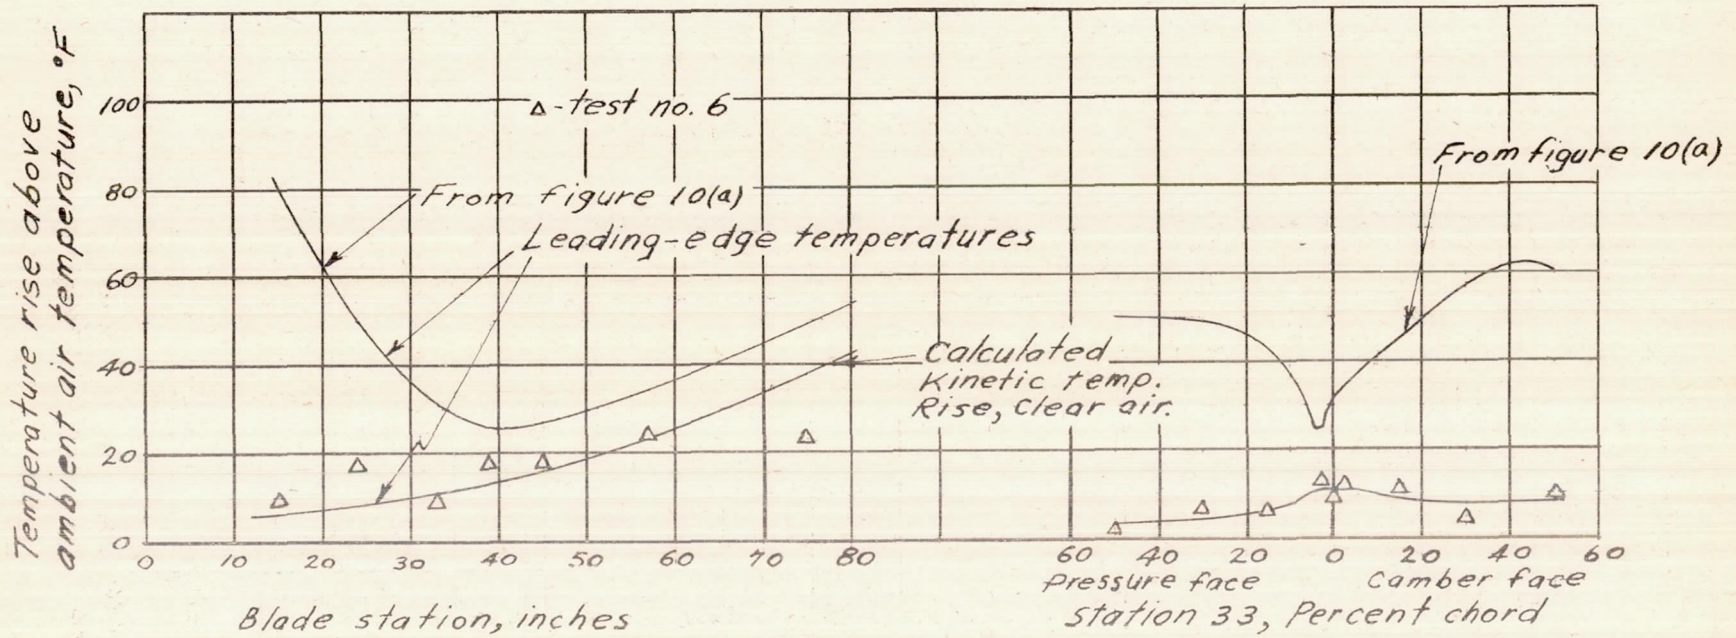 Temperature rise above
ambient air temperature, °F
100
80
60
40
20
0
Δ-test no. 6
From figure 10(a)
Leading-edge temperatures
Calculated
Kinetic temp.
Rise, Clear air.
From figure 10(a)
0 10 20 30 40 50 60 70 80
Blade station, inches
60 40 20 0 20 40 60
Pressure face Camber face
Station 33, Percent chord